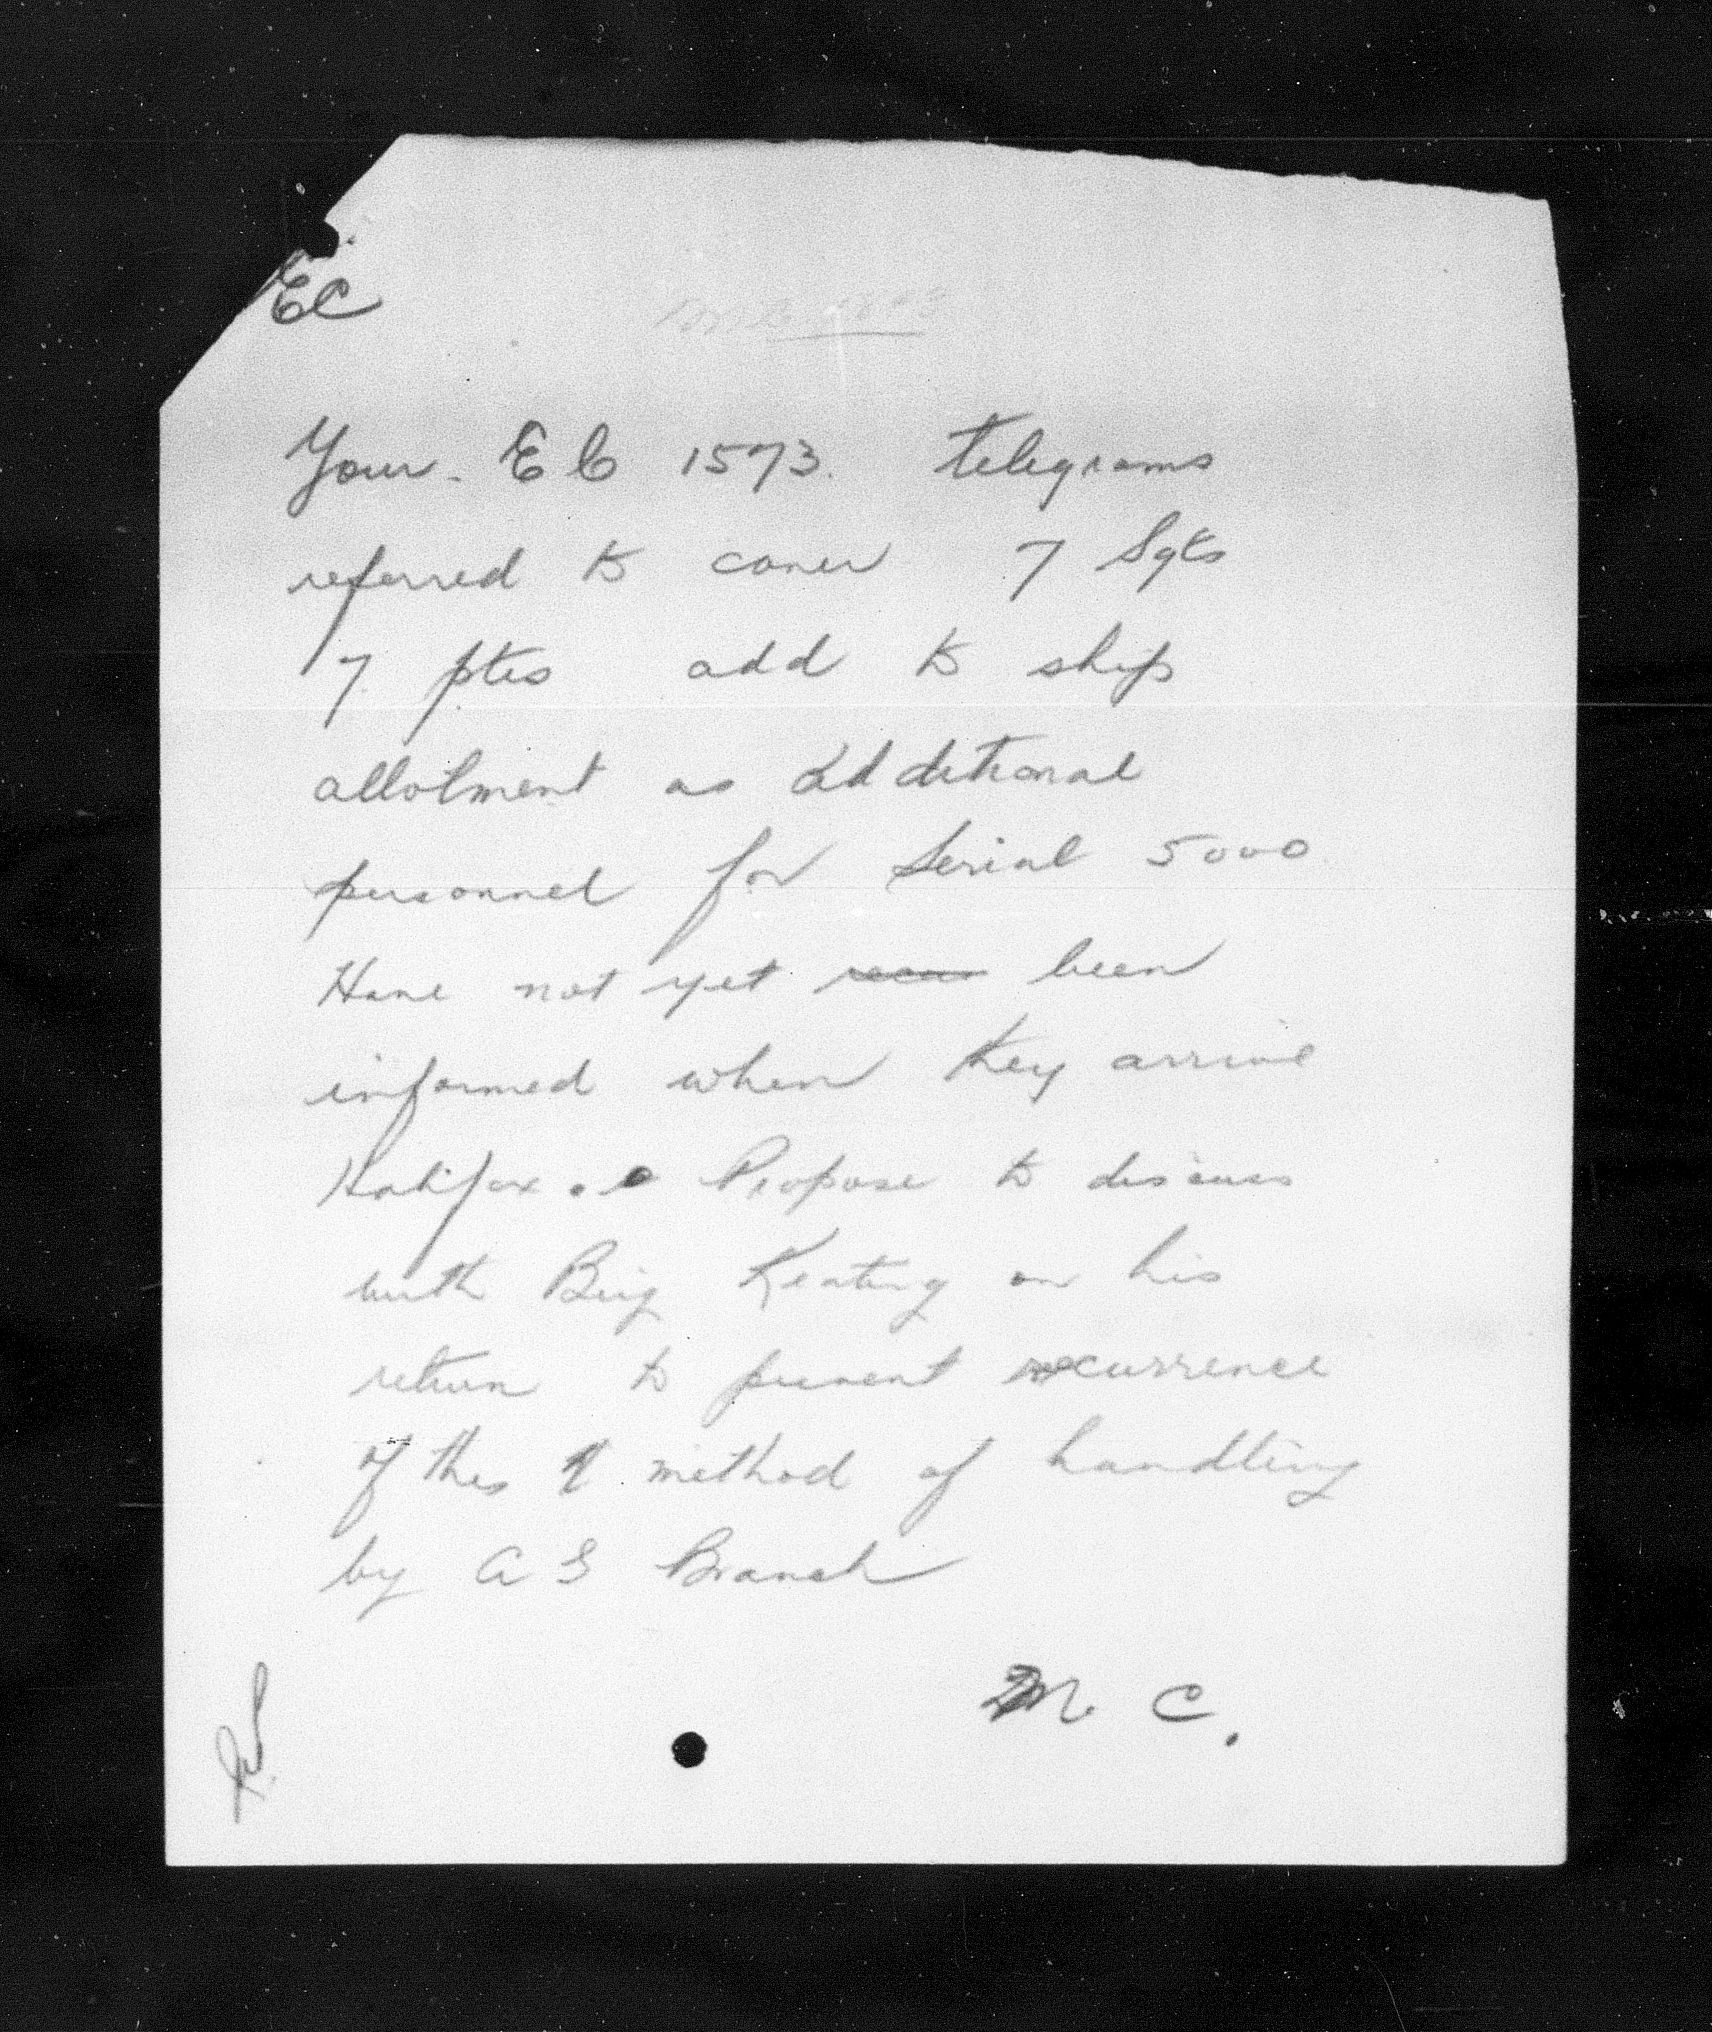 EC
Your. EC 1573. telegrams
referred to cover 7 Sgts
7 ptes add to ship
allotment as additional
personnel for Serial 5000
Have not yet been
informed when they arrive
Halifax. Propose to discuss
with Brig Keating on his
return to prevent recurrence
of this method of handling
by A G Branch
M. C.